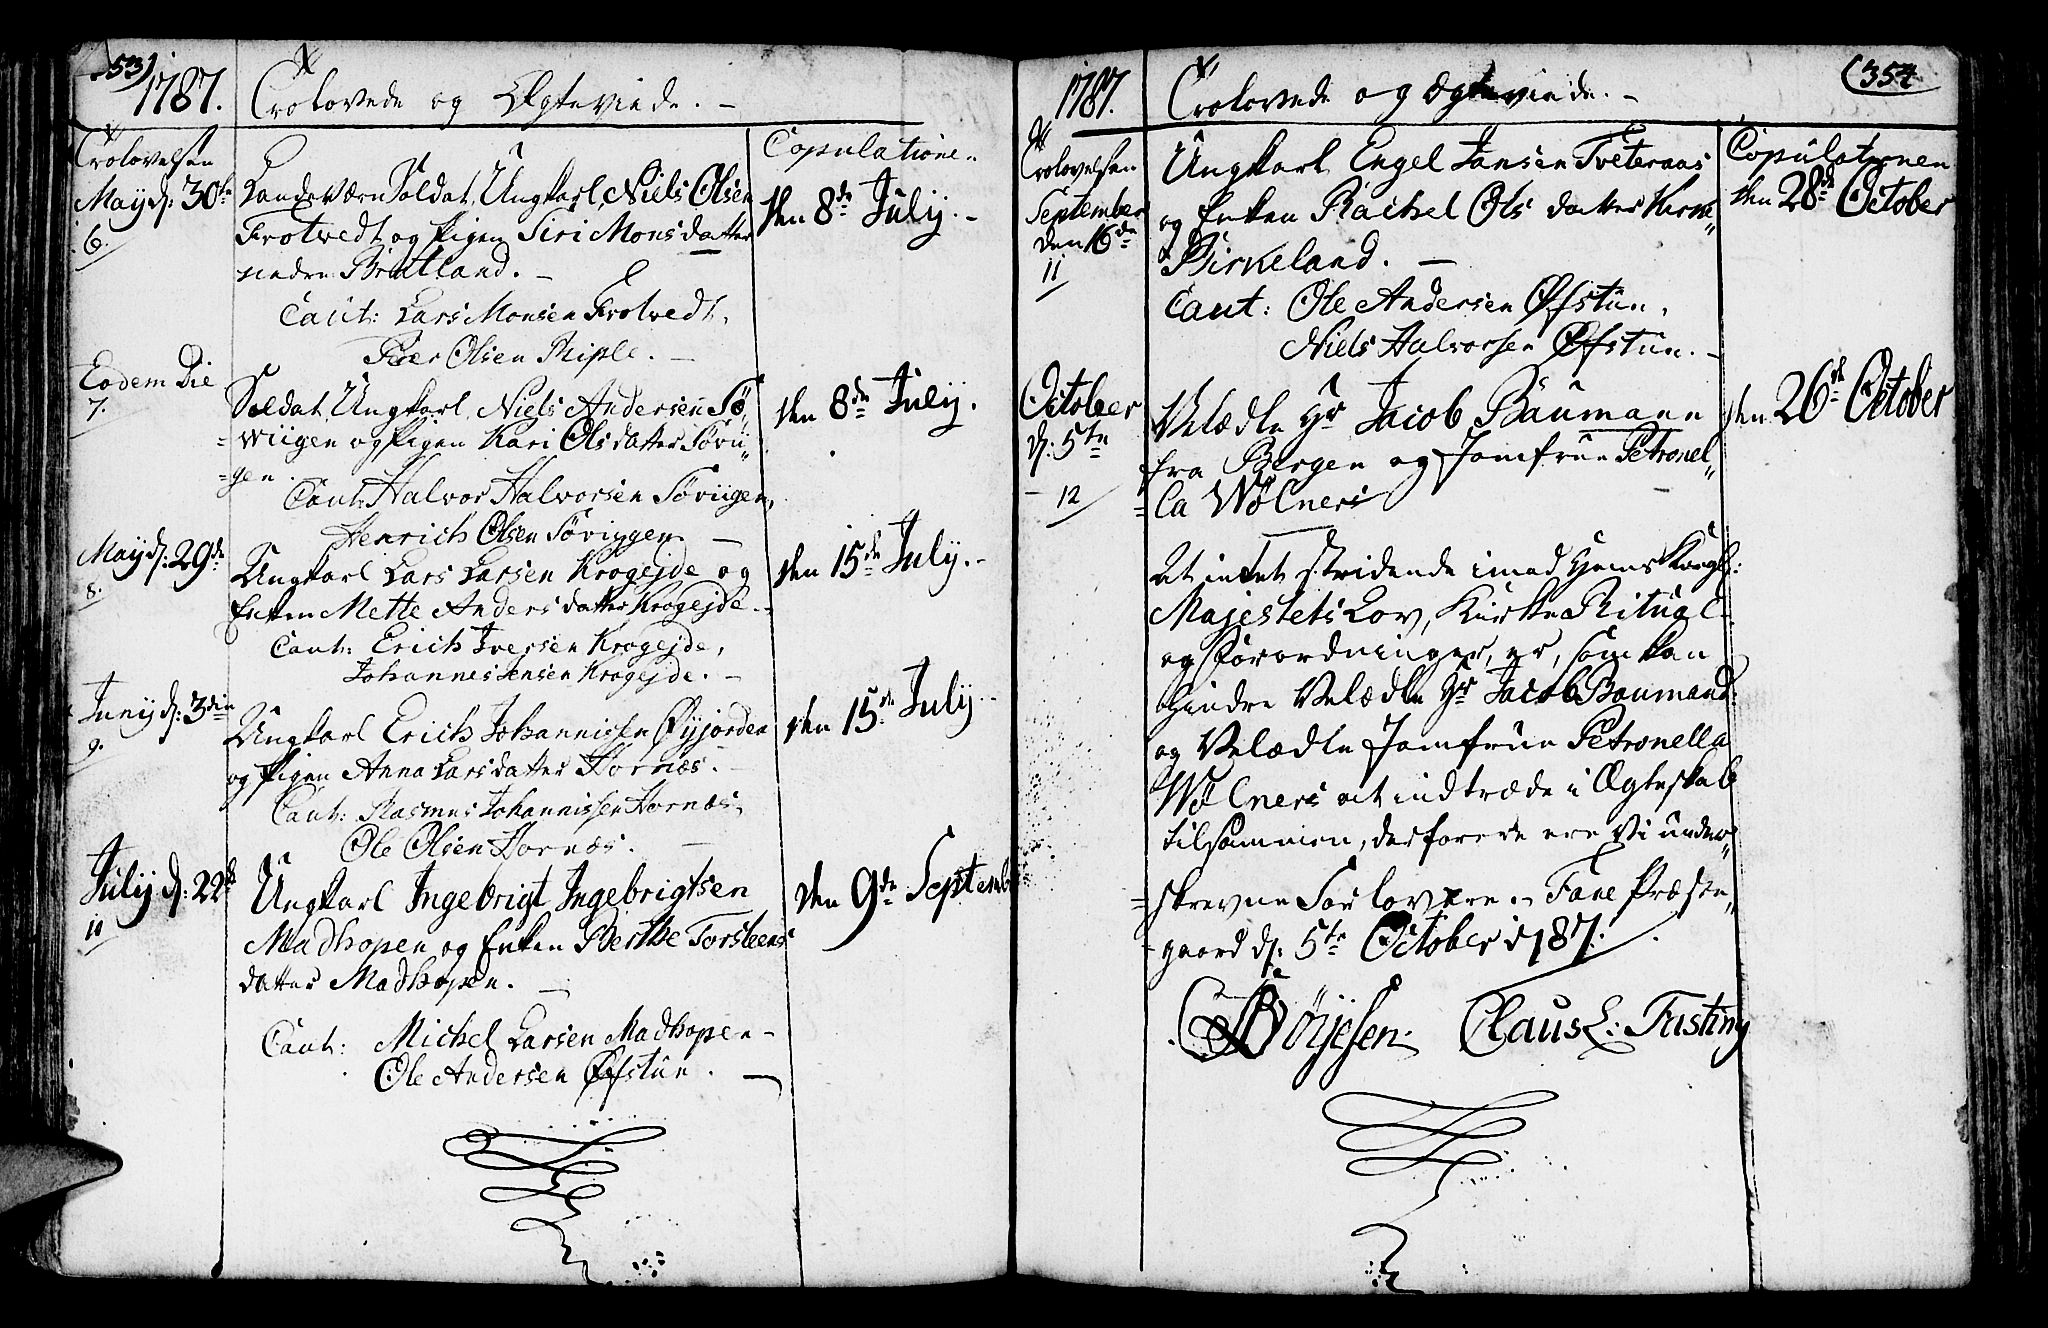 353)
1787. Trolovede og Ægteviede. -
Trolovelsen
May d: 30te
6.
Landeværn Soldat, Ungkarl, Niels Olsen
Frotvedt og Pigen Siri Monsdatter
nedre Bratland. -
Caut: Lars Monsen Frotvedt,
Peer Olsen Riple. -
Copulationen
den 8de July. -
Eodem Die
7.
Soldat Ungkarl, Niels Andersen Sø-
wiigen og Pigen Kari Olsdatter Søvii-
gen.
Caut: Halvor Halvorsen Søviigen,
Henrich Olsen Søviigen. -
den 8de July.
May d: 29de
8.
Ungkarl Lars Larsen Krogejde og
Enken Mette Andersdatter Krogejde. -
Caut: Erich Iversen Krogejde,
Johannes Jensen Krogejde. -
den 15de July. -
Juny d: 3die
9.
Ungkarl Erich Johannissen Øyjorden
og Pigen Anna Larsdatter Hornæs. -
Caut: Rasmus Johannissen Hornæs,
Ole Olsen Hornæs. -
den 15de July. -
July d: 22de
10
Ungkarl Ingebrigt Ingebrigtsen
Madhopen og Enken Berthe Torsteens-
datter Madhopen. -
Caut: Michel Larsen Madhopen -
Ole Andersen Øfstun. -
den 9de Septemb
1787. Trolovede og Ægteviede. -
(354
Trolovelsen
September
den 16de
11
Ungkarl Engel Jansen Tveteraas
og Enken Rachel Ols datter Kirke-
Birkeland. -
Caut: Ole Andersen Øfstun,
Niels Halvorsen Øfstun. -
Copulationen
den 28de October
October
d: 5te
12
Velædle Hr Jacob Baumann
fra Bergen og Jomfrue Petronel-
la Wølners
den 26de October
At intet stridende imod Hans Kongl:
Majestets Lov, Kirke Ritual
og Forordninger, er, som kan
hindre Velædle Hr Jacob Baumand:
og Velædle Jomfrue Petronella
Wølners at indtræde i Ægteskab
tilsammen, derfore ere Vi under-
skrevne Forlovere. - Fane Præste-
gaard d: 5te October 1787.
Børjesen. Claus L: Fasting